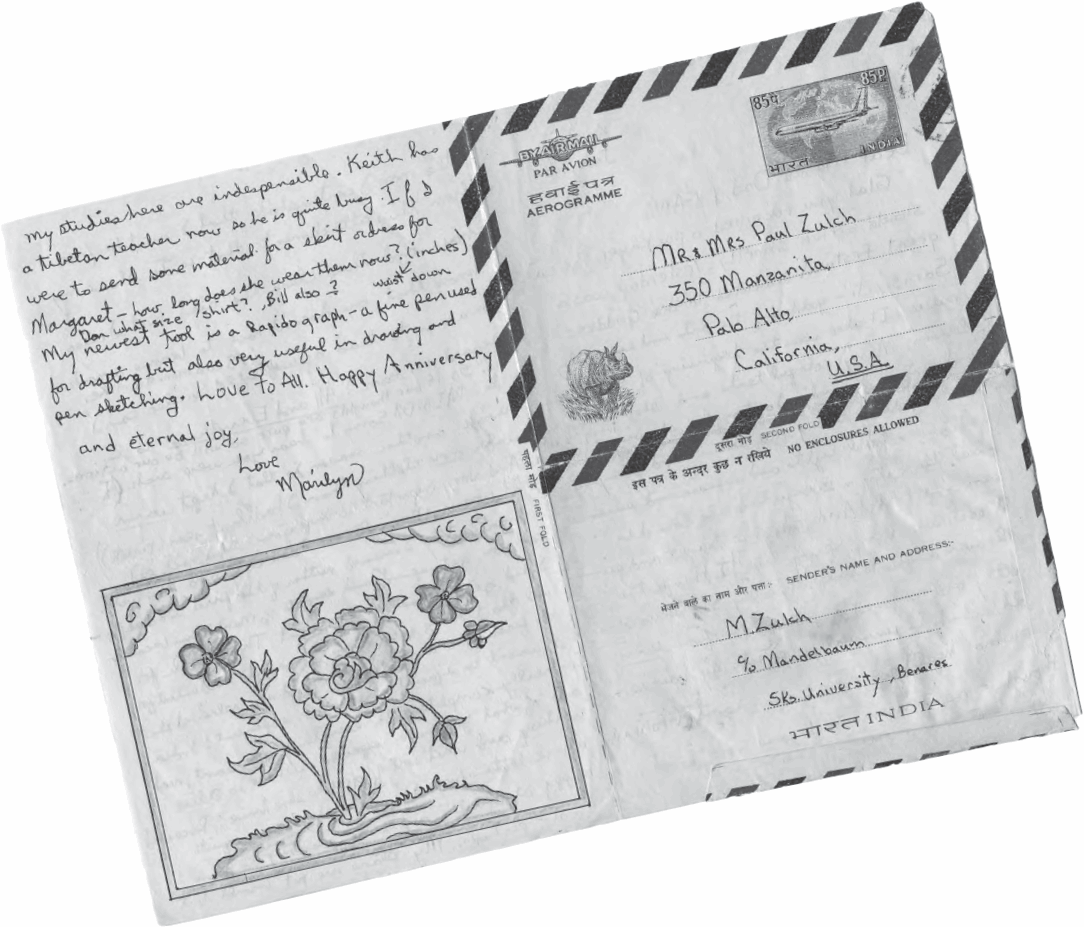 my studies here are indespensible. Keith has
a tibetan teacher now so he is quite busy. If I
were to send some material for a skirt or dress for
Margaret – how long does she wear them now? (inches)
Dan what size shirt? Bill also? waist down
My newest tool is a Rapidograph – a fine pen used
for drafting but also very useful in drawing and
pen sketching. Love To All. Happy Anniversary
and eternal joy,
Love
Marilyn
BY AIR MAIL
PAR AVION
हवाई पत्र
AEROGRAMME
85प. 85P
भारत INDIA
Mr & Mrs Paul Zulch
350 Manzanita,
Palo Alto,
California,
U.S.A.
पहला मोड़ FIRST FOLD
दूसरा मोड़ SECOND FOLD
इस पत्र के अन्दर कुछ न रखिये NO ENCLOSURES ALLOWED
भेजने वाले का नाम और पता:- SENDER'S NAME AND ADDRESS:-
M. Zulch
c/o Mandelbaum
Sks. University, Benares
भारत INDIA